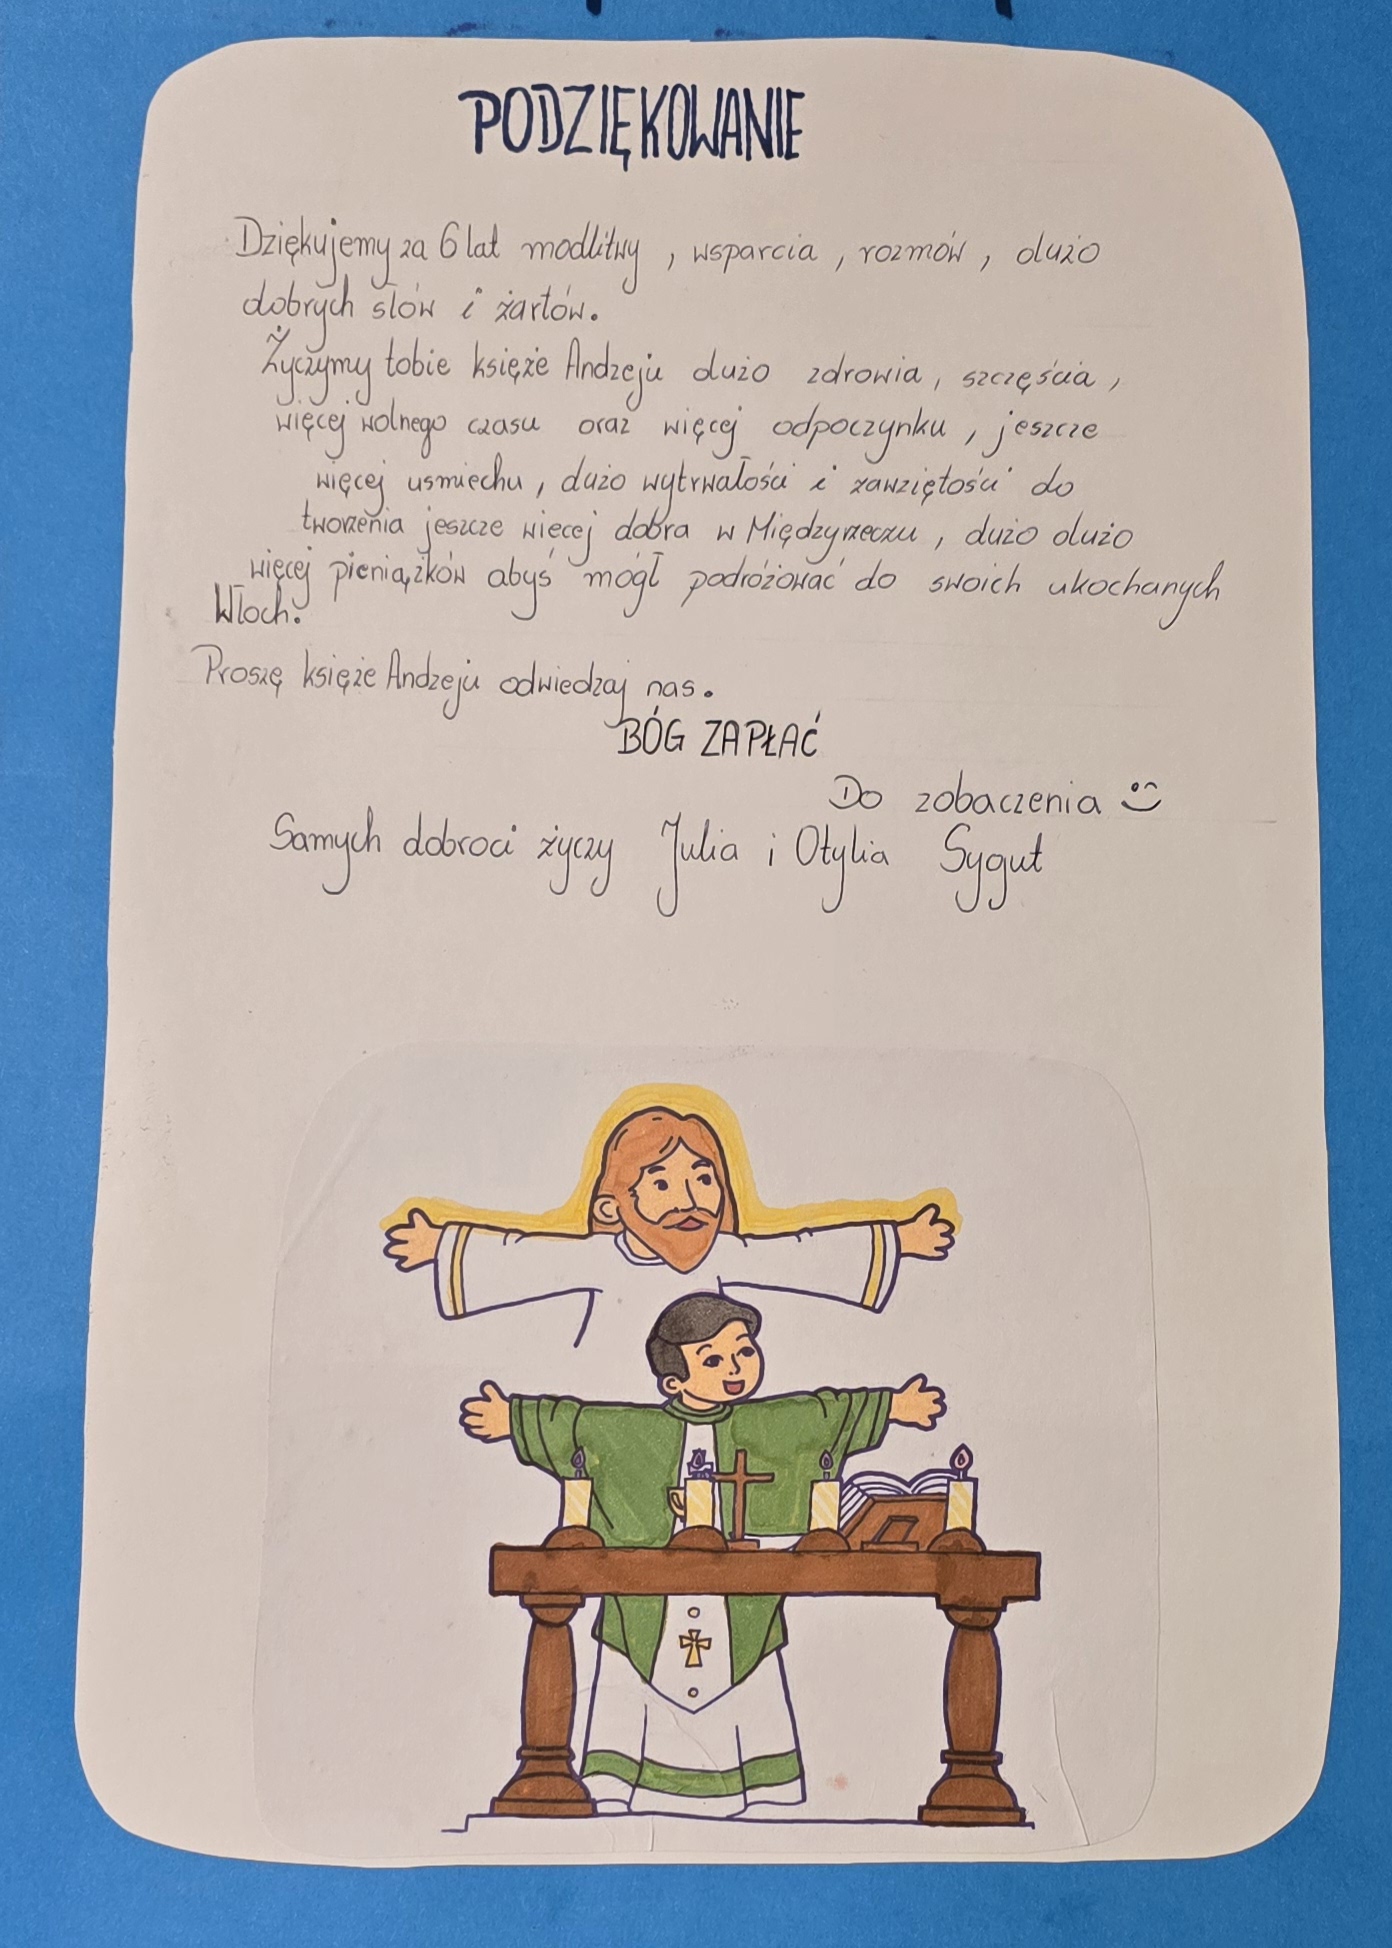 PODZIĘKOWANIE
Dziękujemy za 6 lat modlitwy, wsparcia, rozmów, dużo
dobrych słów i żartów.
Życzymy tobie księże Andzeju dużo zdrowia, szczęścia,
więcej wolnego czasu oraz więcej odpoczynku, jeszcze
więcej usmiechu, dużo wytrwałości i zawziętości do
tworzenia jeszcze wiecej dobra w Międzyrzeczu, dużo dużo
więcej pieniążków abyś mógł podróżować do swoich ukochanych
Włoch.
Proszę księże Andzeju odwiedzaj nas.
BÓG ZAPŁAĆ
Do zobaczenia
Samych dobroci życzy Julia i Otylia Sygut